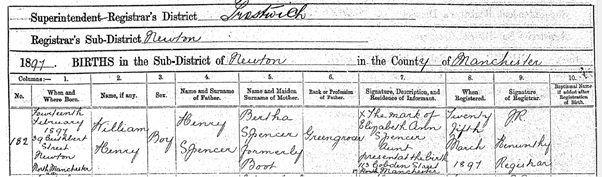 Superintendent-Registrar's District Prestwich
Registrar's Sub-District Newton
1897. BIRTHS in the Sub-District of Newton in the County of Manchester
Columns:— 1. 2. 3. 4. 5. 6. 7. 8. 9. 10.
No. When and Where Born. Name, if any. Sex. Name and Surname of Father. Name and Maiden Surname of Mother. Rank or Profession of Father. Signature, Description, and Residence of Informant. When Registered. Signature of Registrar. Baptismal Name if added after Registration of Birth.
182
Fourteenth
February
1897
39 Cuthbert
Street
Newton
North Manchester
William
Henry
Boy
Henry
Spencer
Bertha
Spencer
formerly
Boot
Greengrocer
X The mark of
Elizabeth Ann
Spencer
Aunt
present at the birth
Cobden Street
North Manchester
Twenty
fifth
March
1897
JR
Registrar